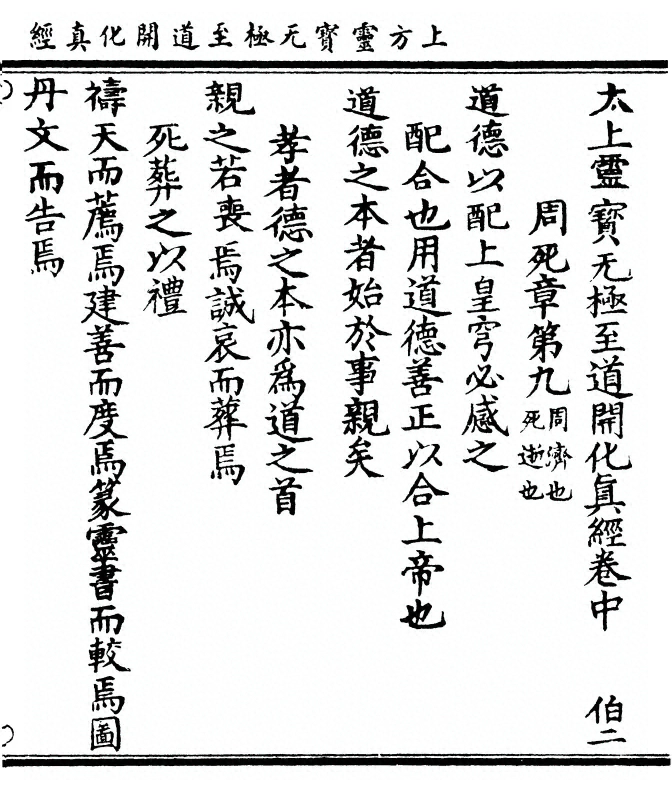 上方靈寶无極至道開化真經
太上靈寶无極至道開化真經卷中 伯二
周死章第九周濟也死逝也
道德以配上皇穹必感之
配合也用道德善正以合上帝也
道德之本者始於事親矣
孝者德之本亦為道之首
親之若喪焉誠哀而葬焉
死葬之以禮
禱天而薦焉建善而度焉篆靈書而較焉圖
丹文而告焉